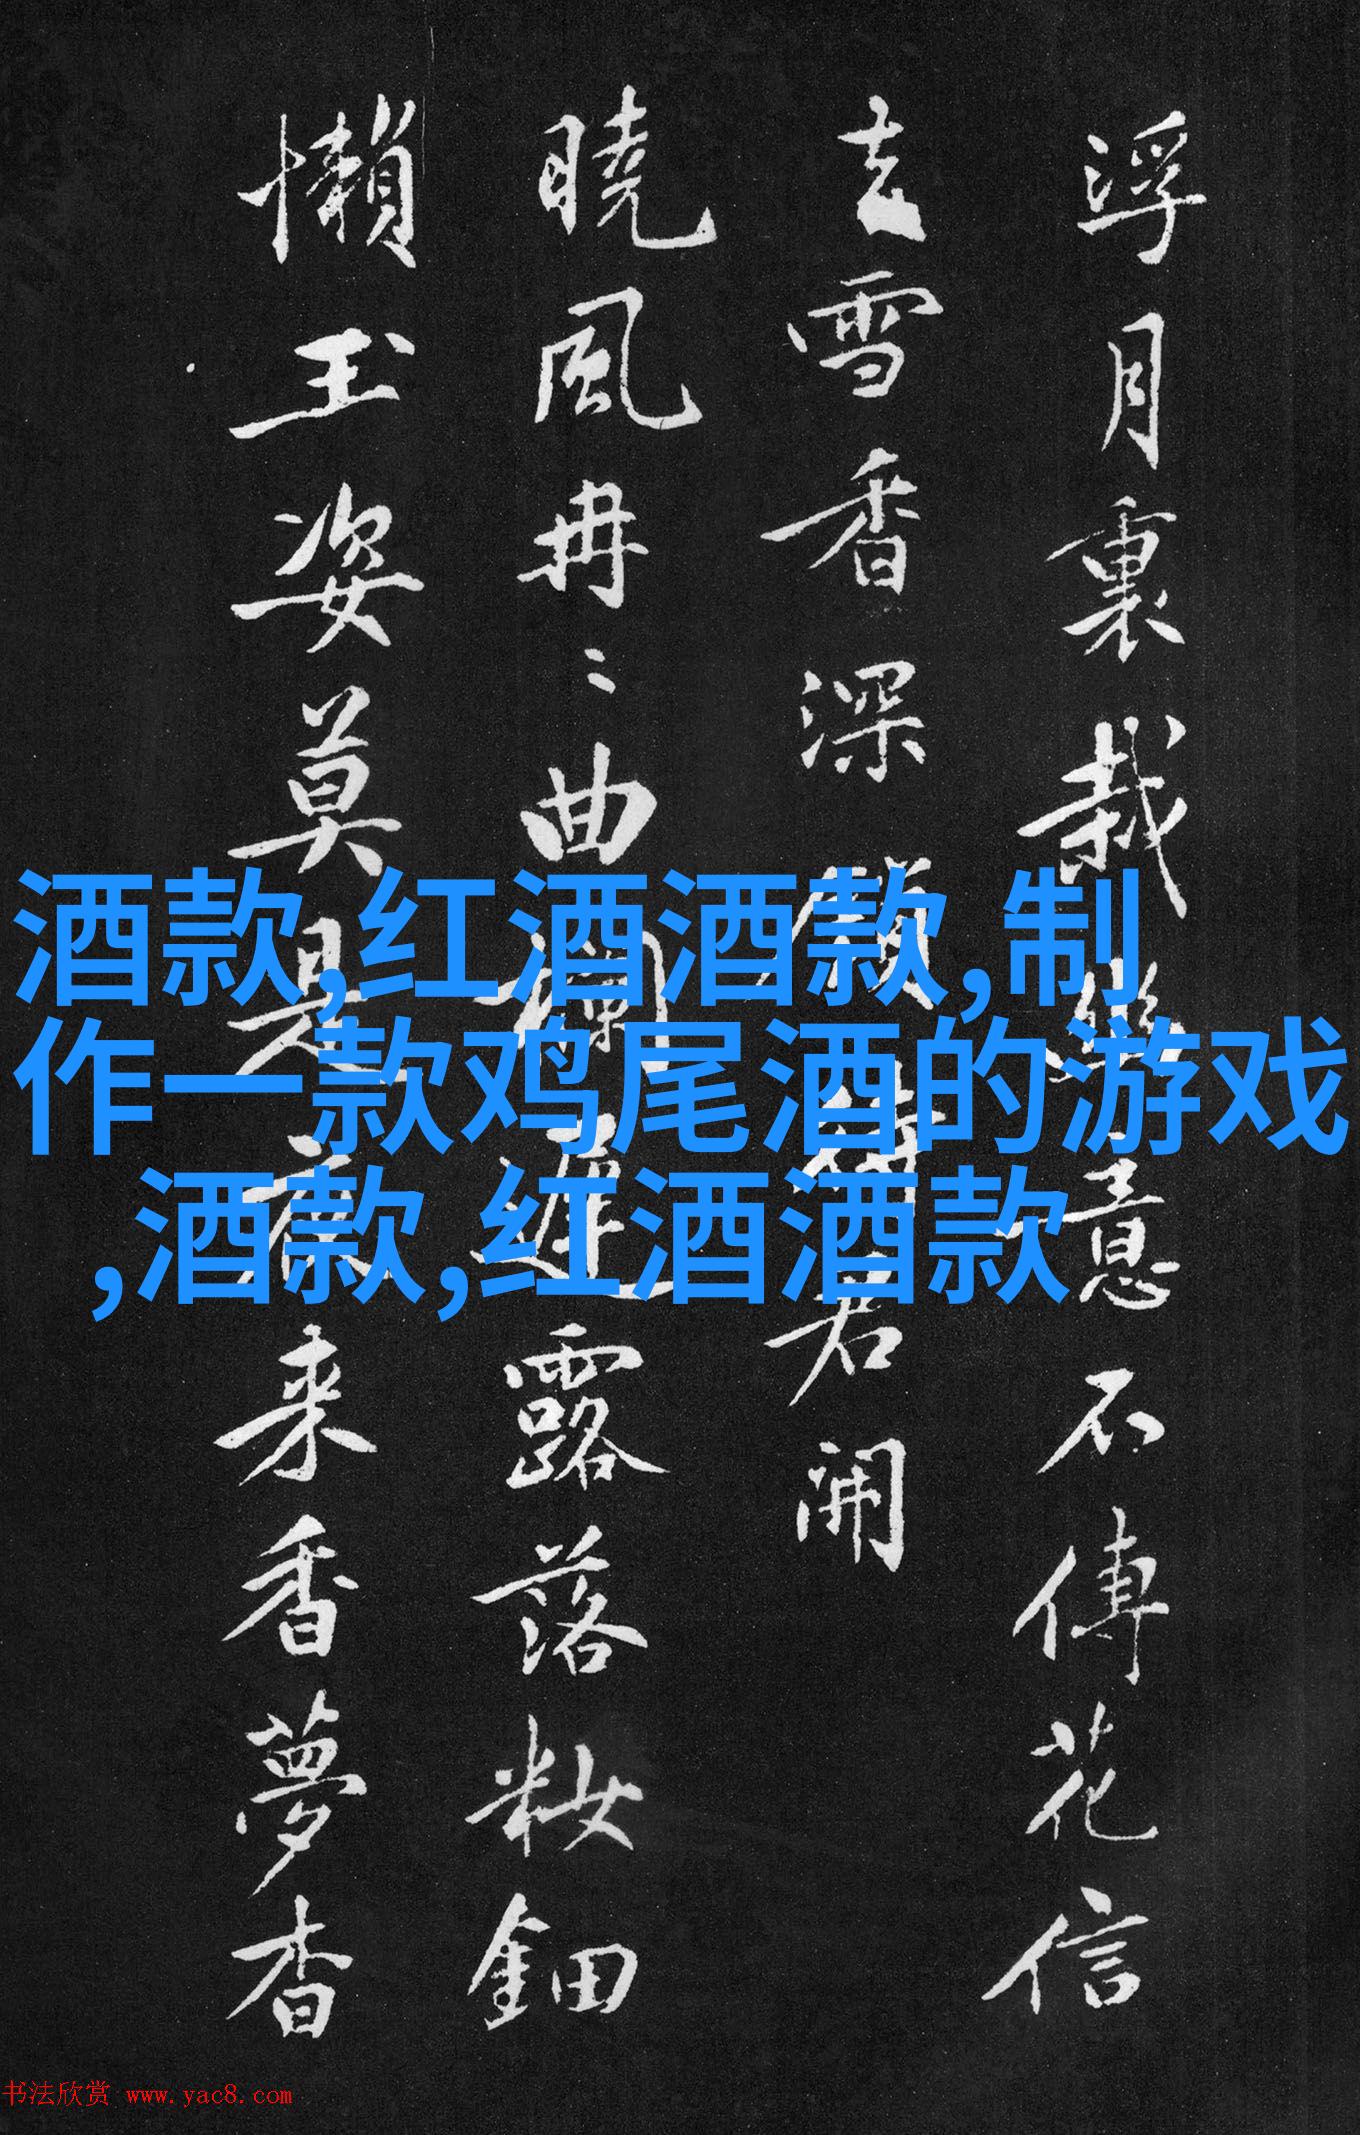 浮月裏栽意不傳花信
去雪香深鎖待君開
曉風冉〻曲欄遲露落粧鈿
懶玉姿莫是夜来香夢杳
酒款,红酒酒款,制
作一款鸡尾酒的游戏
,酒款,红酒酒款
书法欣赏 www.yac8.com